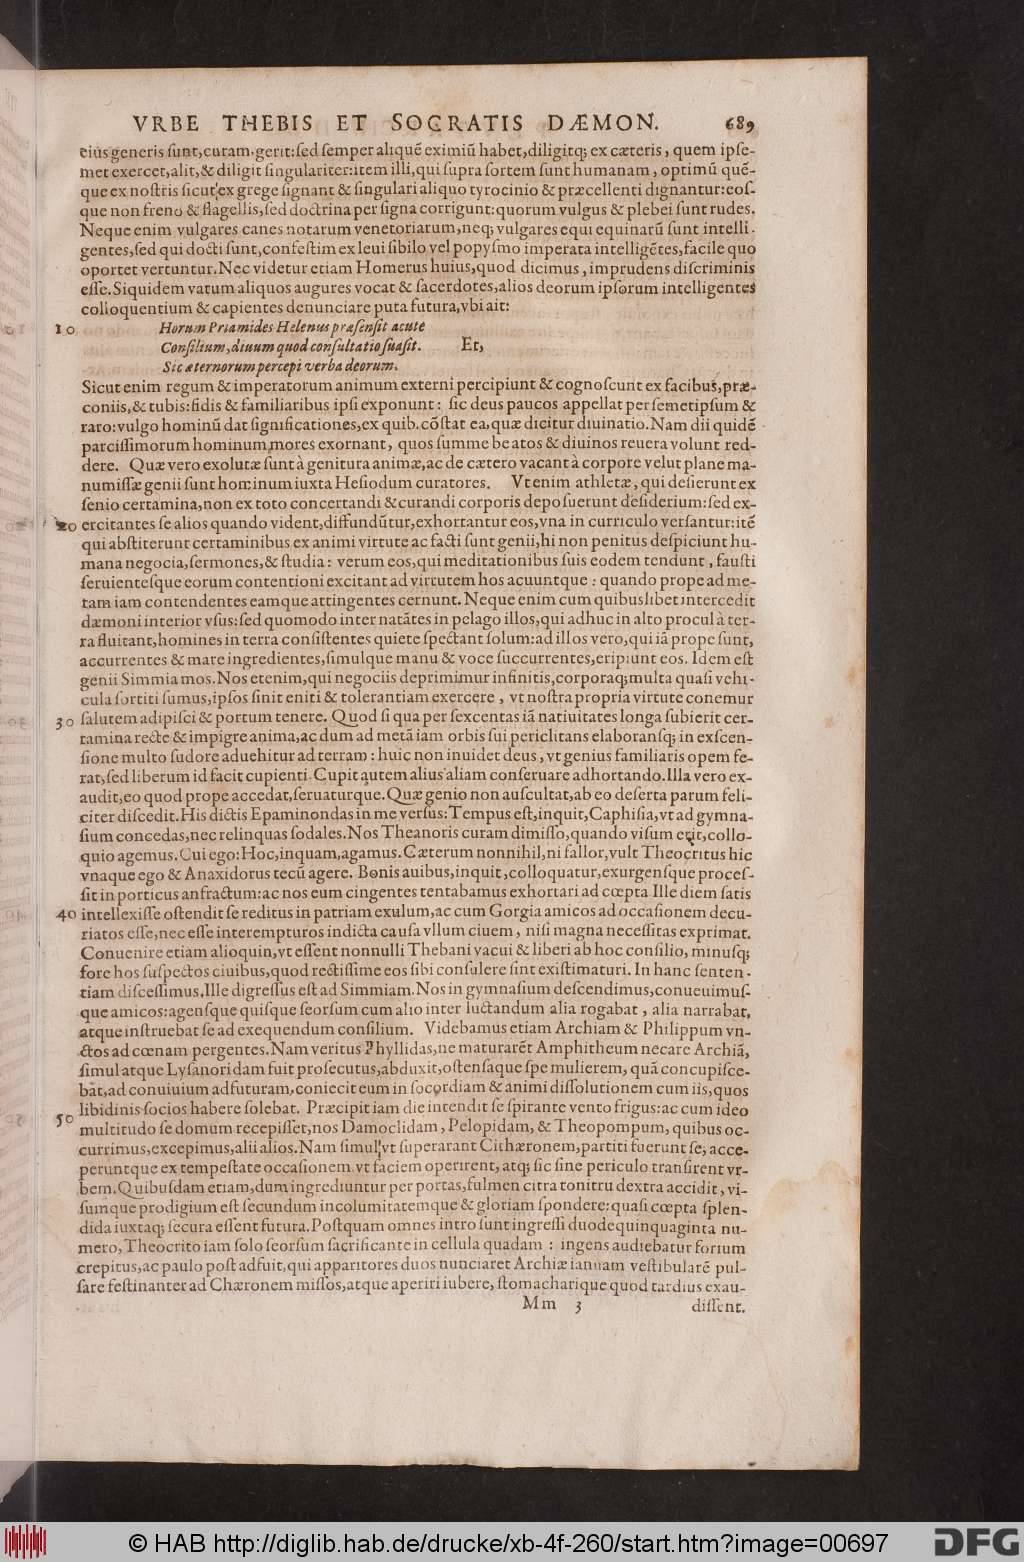 VRBE THEBIS ET SOCRATIS DÆMON. 689
eius generis sunt, curam gerit: sed semper aliquẽ eximiũ habet, diligitq; ex cæteris, quem ipse-
met exercet, alit, & diligit singulariter: item illi, qui supra sortem sunt humanam, optimũ quẽ-
que ex nostris sicut ex grege signant & singulari aliquo tyrocinio & præcellenti dignantur: eos-
que non freno & flagellis, sed doctrina per signa corrigunt: quorum vulgus & plebei sunt rudes.
Neque enim vulgares canes notarum venetoriarum, neq; vulgares equi equinarũ sunt intelli-
gentes, sed qui docti sunt, confestim ex leui sibilo vel popysmo imperata intelligẽtes, facile quo
oportet vertuntur. Nec videtur etiam Homerus huius, quod dicimus, imprudens discriminis
esse. Siquidem vatum aliquos augures vocat & sacerdotes, alios deorum ipsorum intelligentes
colloquentium & capientes denunciare puta futura, vbi ait:
10 Horum Priamides Helenus præsensit acute
Consilium, diuum quod consultatio suasit. Et,
Sic æternorum percepi verba deorum.
Sicut enim regum & imperatorum animum externi percipiunt & cognoscunt ex facibus, præ-
coniis, & tubis: fidis & familiaribus ipsi exponunt: sic deus paucos appellat per semetipsum &
raro: vulgo hominũ dat significationes, ex quib. cõstat ea, quæ dicitur diuinatio. Nam dii quidẽ
parcissimorum hominum mores exornant, quos summe beatos & diuinos reuera volunt red-
dere. Quæ vero exolutæ sunt à genitura animæ, ac de cætero vacant à corpore velut plane ma-
numissæ genii sunt hominum iuxta Hesiodum curatores. Vt enim athletæ, qui desierunt ex
senio certamina, non ex toto concertandi & curandi corporis deposuerunt desiderium: sed ex-
20 ercitantes se alios quando vident, diffundũtur, exhortantur eos, vna in curriculo versantur: itẽ
qui abstiterunt certaminibus ex animi virtute ac facti sunt genii, hi non penitus despiciunt hu-
mana negocia, sermones, & studia: verum eos, qui meditationibus suis eodem tendunt, fausti
seruientesque eorum contentioni excitant ad virtutem hos acuuntque: quando prope ad me-
tam iam contendentes eamque attingentes cernunt. Neque enim cum quibuslibet intercedit
dæmoni interior vsus: sed quomodo inter natãtes in pelago illos, qui adhuc in alto procul à ter-
ra fluitant, homines in terra consistentes quiete spectant solum: ad illos vero, qui iã prope sunt,
accurrentes & mare ingredientes, simulque manu & voce succurrentes, eripiunt eos. Idem est
genii Simmia mos. Nos etenim, qui negociis deprimimur infinitis, corporaq; multa quasi vehi-
cula sortiti sumus, ipsos sinit eniti & tolerantiam exercere, vt nostra propria virtute conemur
30 salutem adipisci & portum tenere. Quod si qua per sexcentas iã natiuitates longa subierit cer-
tamina recte & impigre anima, ac dum ad metã iam orbis sui periclitans elaboransq; in exscen-
sione multo sudore aduehitur ad terram: huic non inuidet deus, vt genius familiaris opem fe-
rat, sed liberum id facit cupienti. Cupit autem alius aliam conseruare adhortando. Illa vero ex-
audit, eo quod prope accedat, seruaturque. Quæ genio non auscultat, ab eo deserta parum feli-
citer discedit. His dictis Epaminondas in me versus: Tempus est, inquit, Caphisia, vt ad gymna-
sium concedas, nec relinquas sodales. Nos Theanoris curam dimisso, quando visum erit, collo-
quio agemus. Cui ego: Hoc, inquam, agamus. Cæterum nonnihil, ni fallor, vult Theocritus hic
vnaque ego & Anaxidorus tecũ agere. Bonis auibus, inquit, colloquatur, exurgensque proces-
sit in porticus anfractum: ac nos eum cingentes tentabamus exhortari ad cœpta Ille diem satis
40 intellexisse ostendit se reditus in patriam exulum, ac cum Gorgia amicos ad occasionem decu-
riatos esse, nec esse interempturos indicta causa vllum ciuem, nisi magna necessitas exprimat.
Conuenire etiam alioquin, vt essent nonnulli Thebani vacui & liberi ab hoc consilio, minusq;
fore hos suspectos ciuibus, quod rectissime eos sibi consulere sint existimaturi. In hanc senten-
tiam discessimus. Ille digressus est ad Simmiam. Nos in gymnasium descendimus, conueuimus-
que amicos: agensque quisque seorsum cum alio inter luctandum alia rogabat, alia narrabat,
atque instruebat se ad exequendum consilium. Videbamus etiam Archiam & Philippum vn-
ctos ad cœnam pergentes. Nam veritus Phyllidas, ne maturarẽt Amphitheum necare Archiã,
simul atque Lysanoridam fuit prosecutus, abduxit, ostensaque spe mulierem, quã concupisce-
bat, ad conuiuium adfuturam, coniecit eum in socordiam & animi dissolutionem cum iis, quos
libidinis socios habere solebat. Præcipit iam die intendit se spirante vento frigus: ac cum ideo
50 multitudo se domum recepisset, nos Damoclidam, Pelopidam, & Theopompum, quibus oc-
currimus, excepimus, alii alios. Nam simul vt superarant Cithæronem, partiti fuerunt se, acce-
peruntque ex tempestate occasionem vt faciem operirent, atq; sic sine periculo transirent vr-
bem. Quibusdam etiam, dum ingrediuntur per portas, fulmen citra tonitru dextra accidit, vi-
sumque prodigium est secundum incolumitatemque & gloriam spondere: quasi cœpta splen-
dida iuxtaq; secura essent futura. Postquam omnes intro sunt ingressi duodequinquaginta nu-
mero, Theocrito iam solo seorsum sacrificante in cellula quadam: ingens audiebatur forium
crepitus, ac paulo post adfuit, qui apparitores duos nunciaret Archiæ ianuam vestibularẽ pul-
sare festinanter ad Chæronem missos, atque aperiri iubere, stomacharique quod tardius exau-
Mm 3 dissent.
© HAB http://diglib.hab.de/drucke/xb-4f-260/start.htm?image=00697 DFG